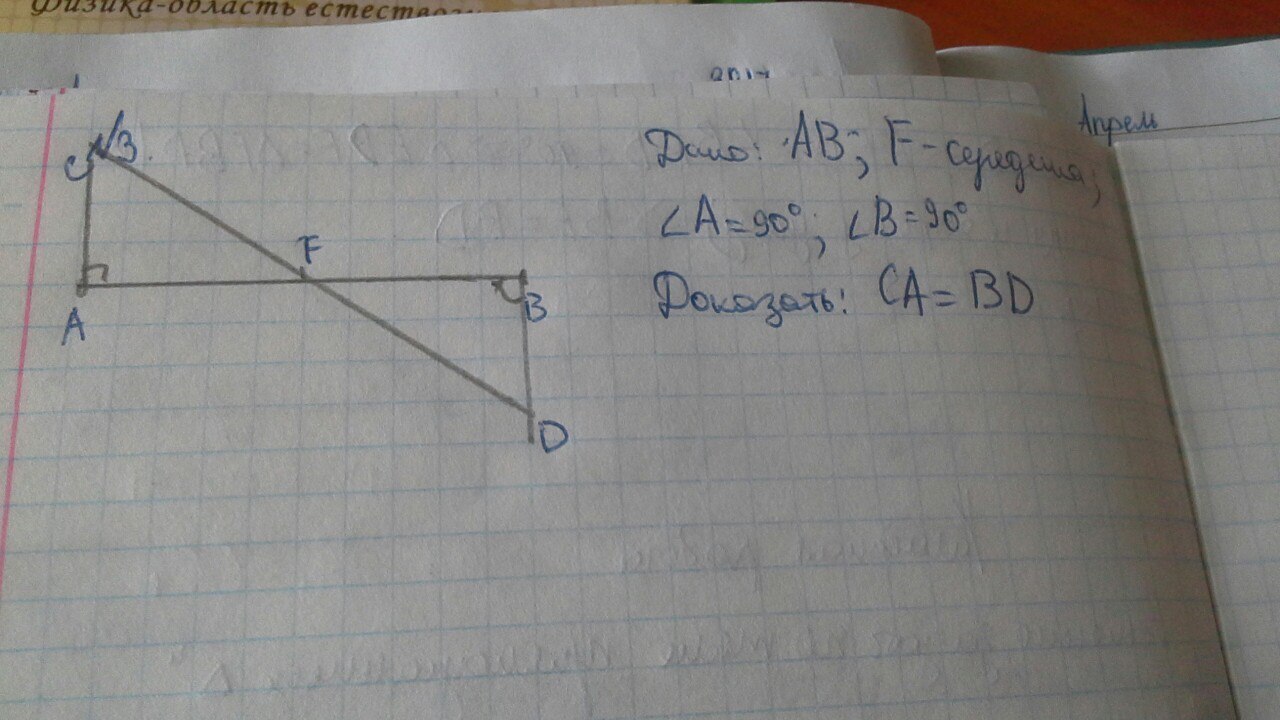 Физика-область естествозн
Апрель
№3.
C
Дано: AB; F-середина;
∠A=90°; ∠B=90°
F
Доказать: CA=BD
B
A
D